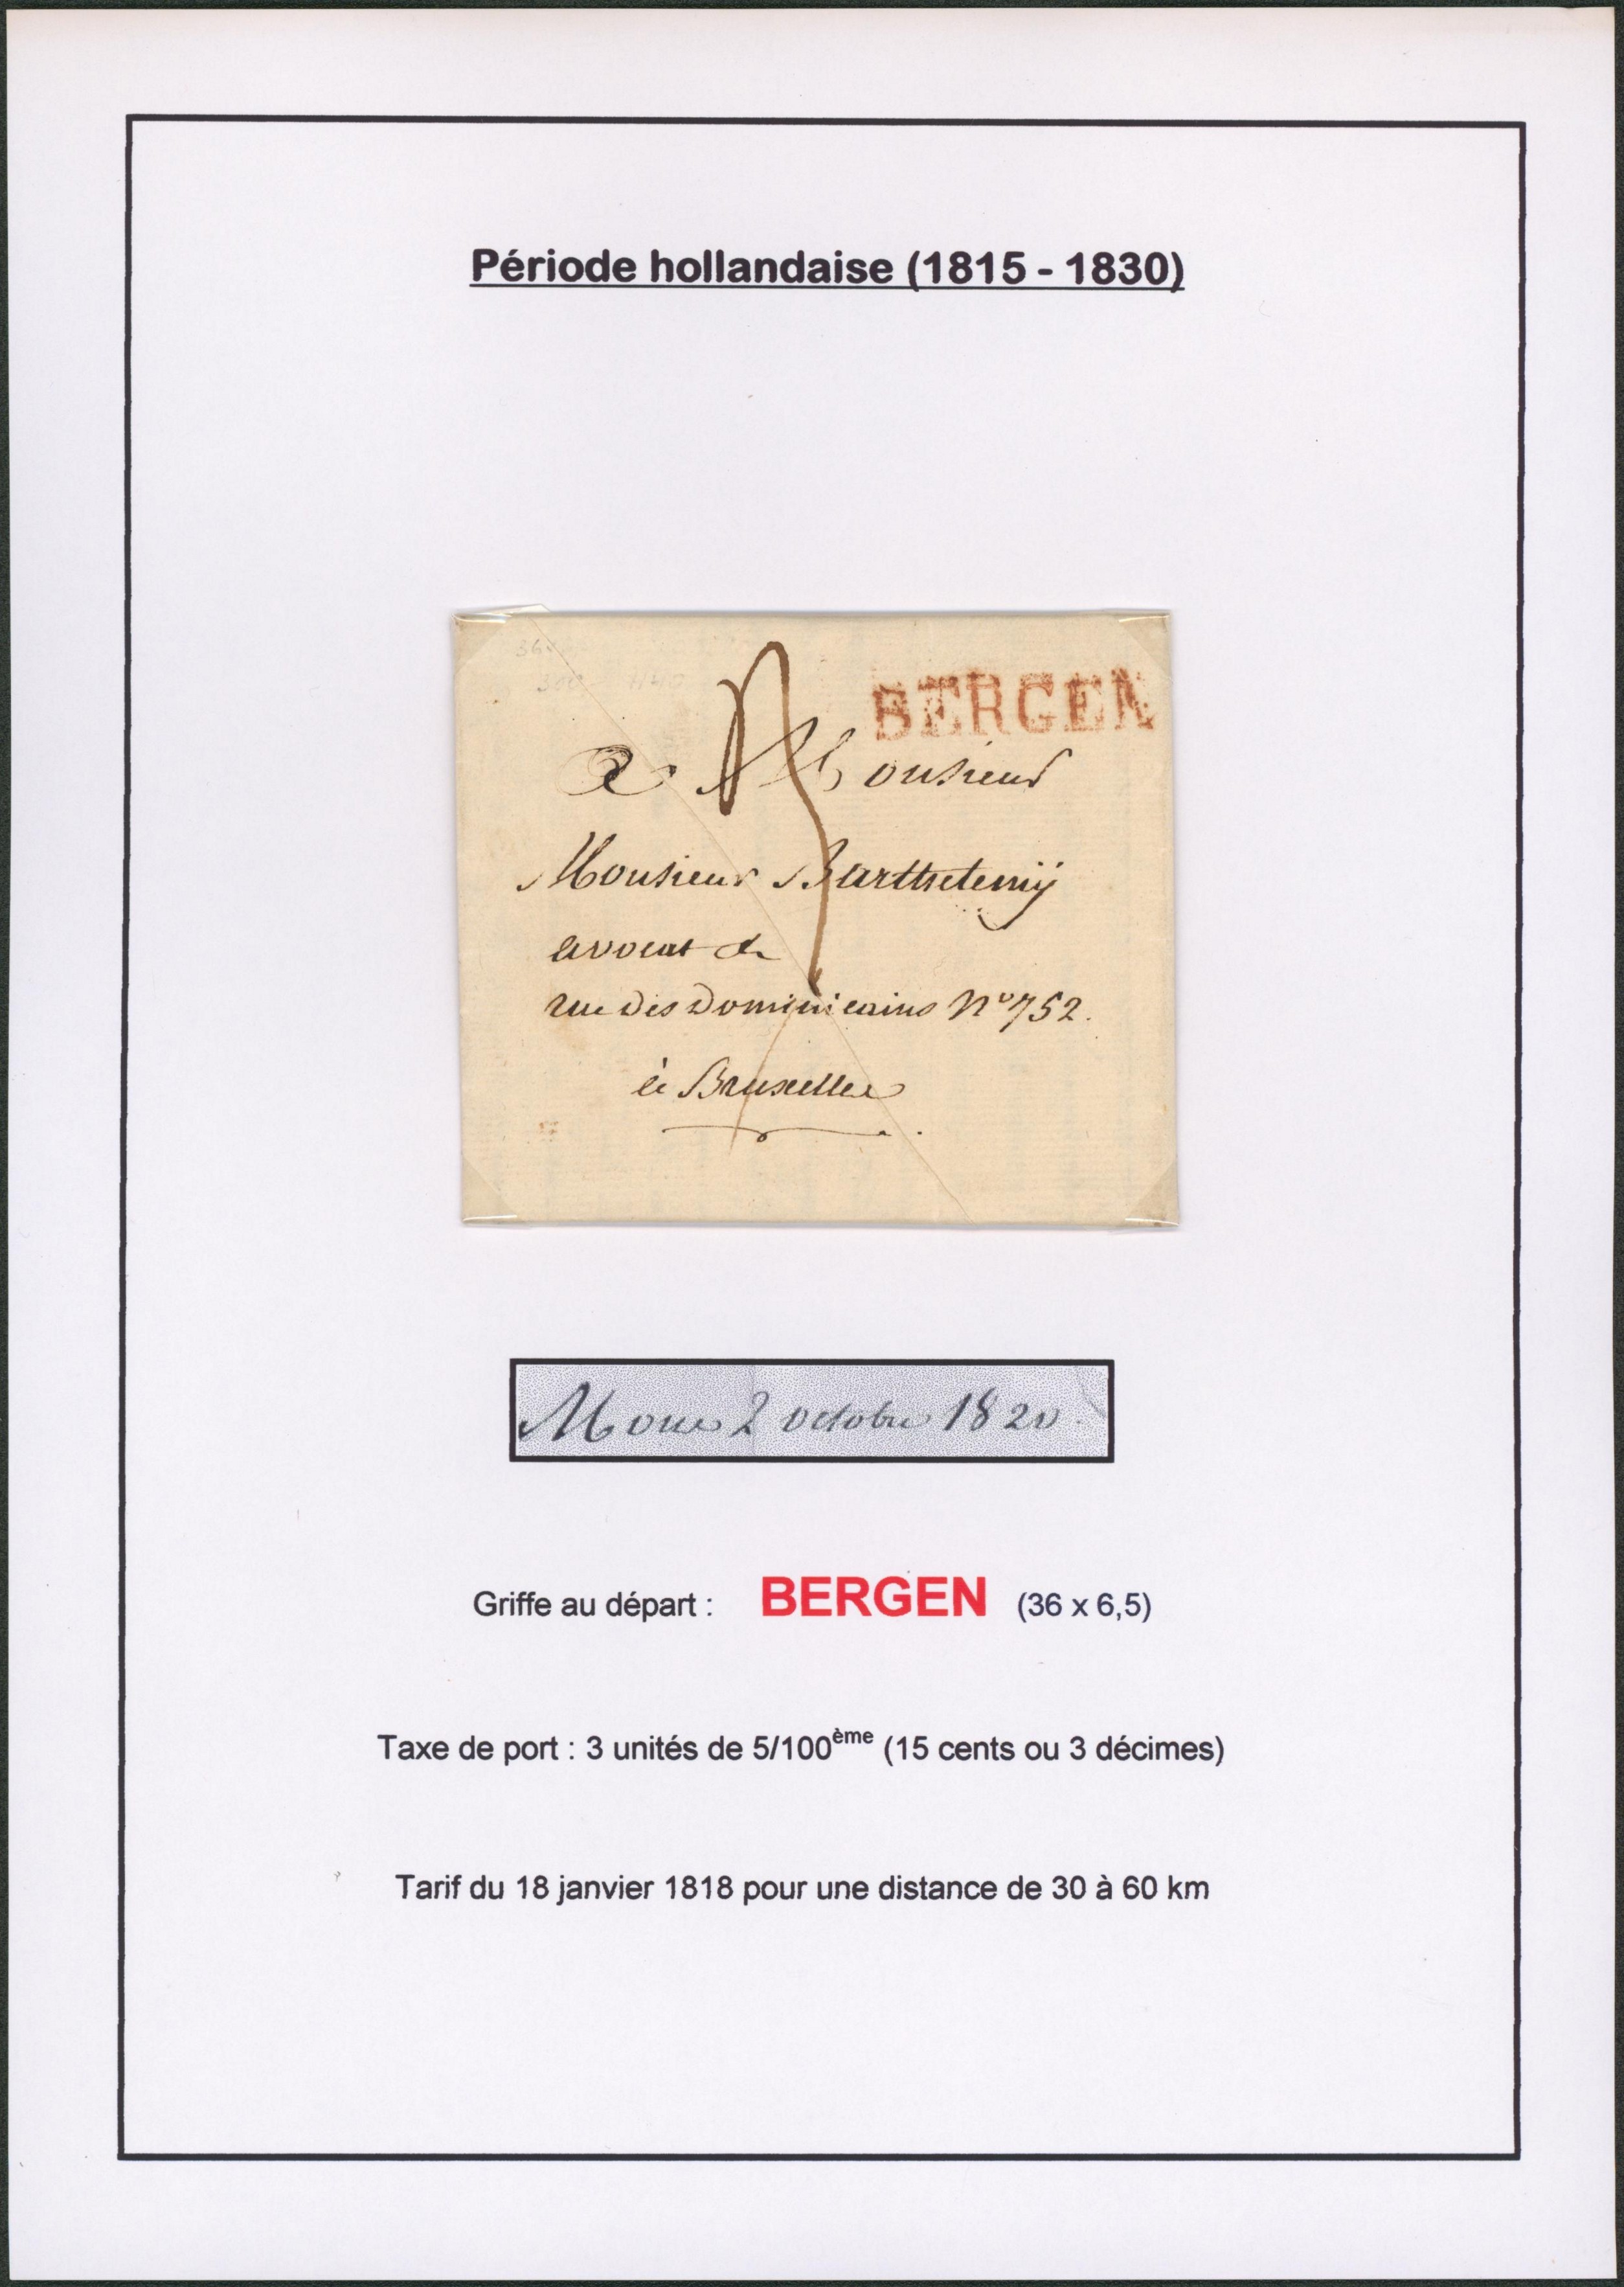 Période hollandaise (1815 - 1830)
36
300
BERGEN
3
a Monsieur
Monsieur Barthelemÿ
avocat
rue des Dominicains N° 752.
à Bruxelles
Mons 2 octobre 1820.
Griffe au départ : BERGEN (36 x 6,5)
Taxe de port : 3 unités de 5/100ème (15 cents ou 3 décimes)
Tarif du 18 janvier 1818 pour une distance de 30 à 60 km